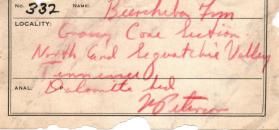 No. 332 NAME: Beersheba Fm
LOCALITY: Grassy Cove Section
North End Sequatchie Valley
Tennessee
ANAL: Dolomite bed
V Peterson